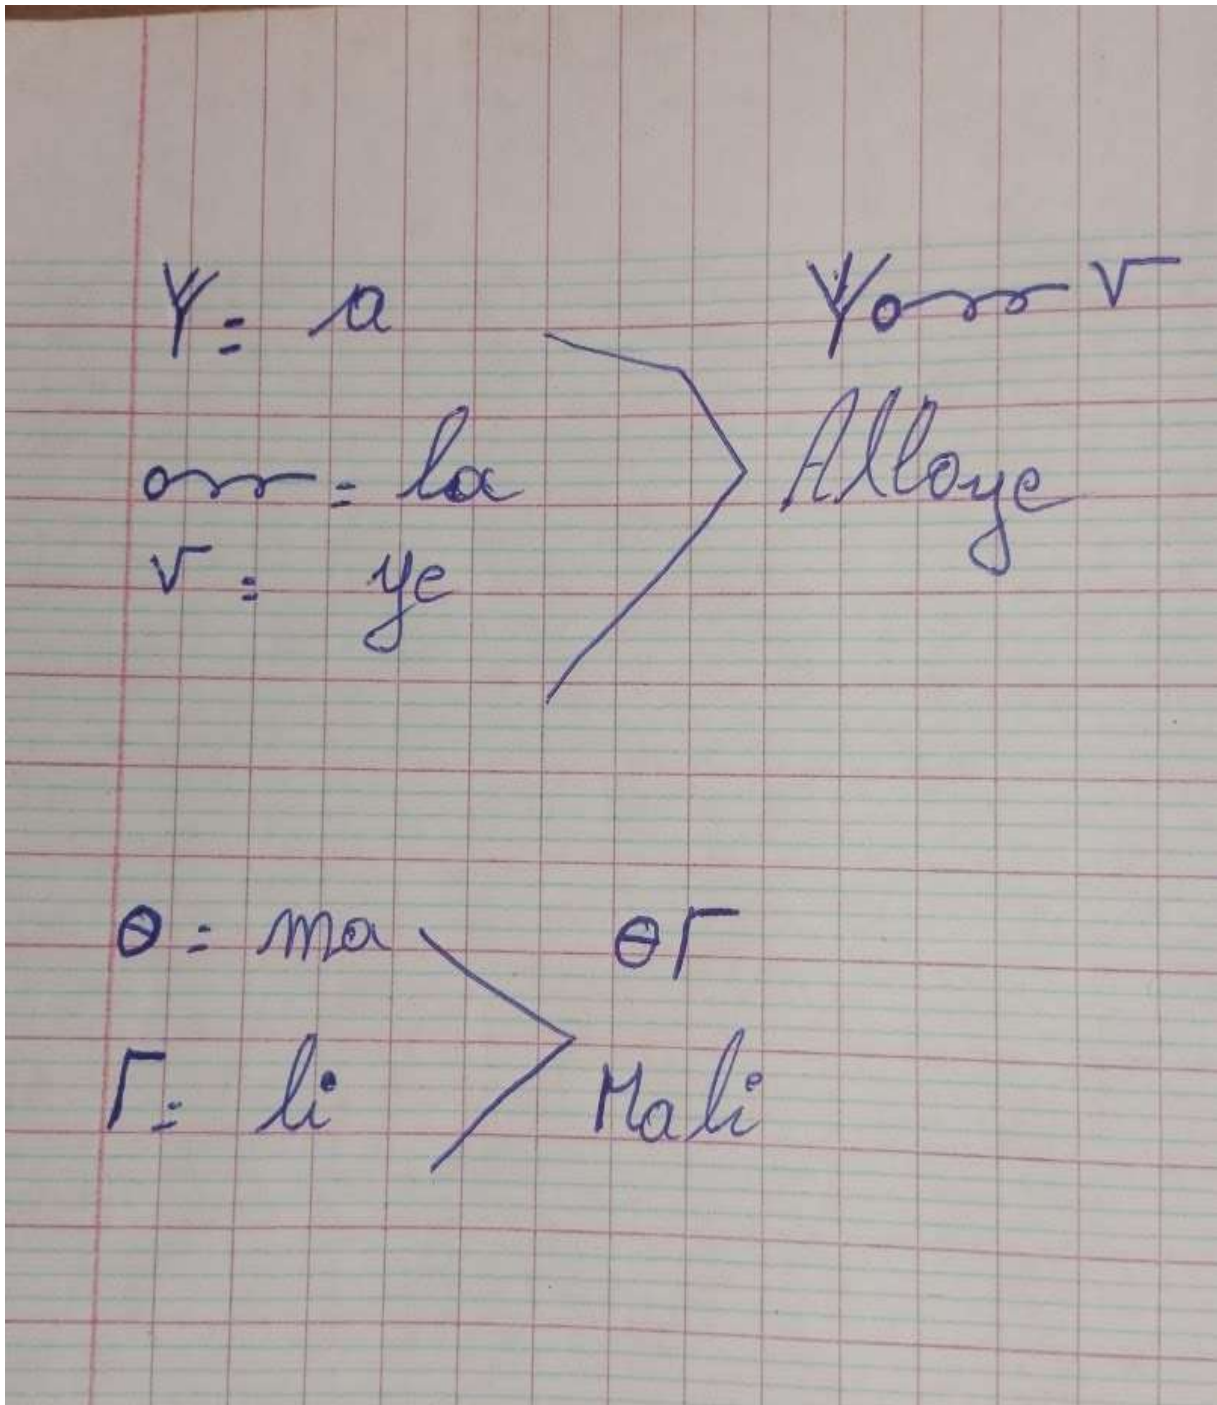 Ψ = a
= la
√ = ye
Ψ √
Allaye
Θ = ma
Γ = li
ΘΓ
Mali